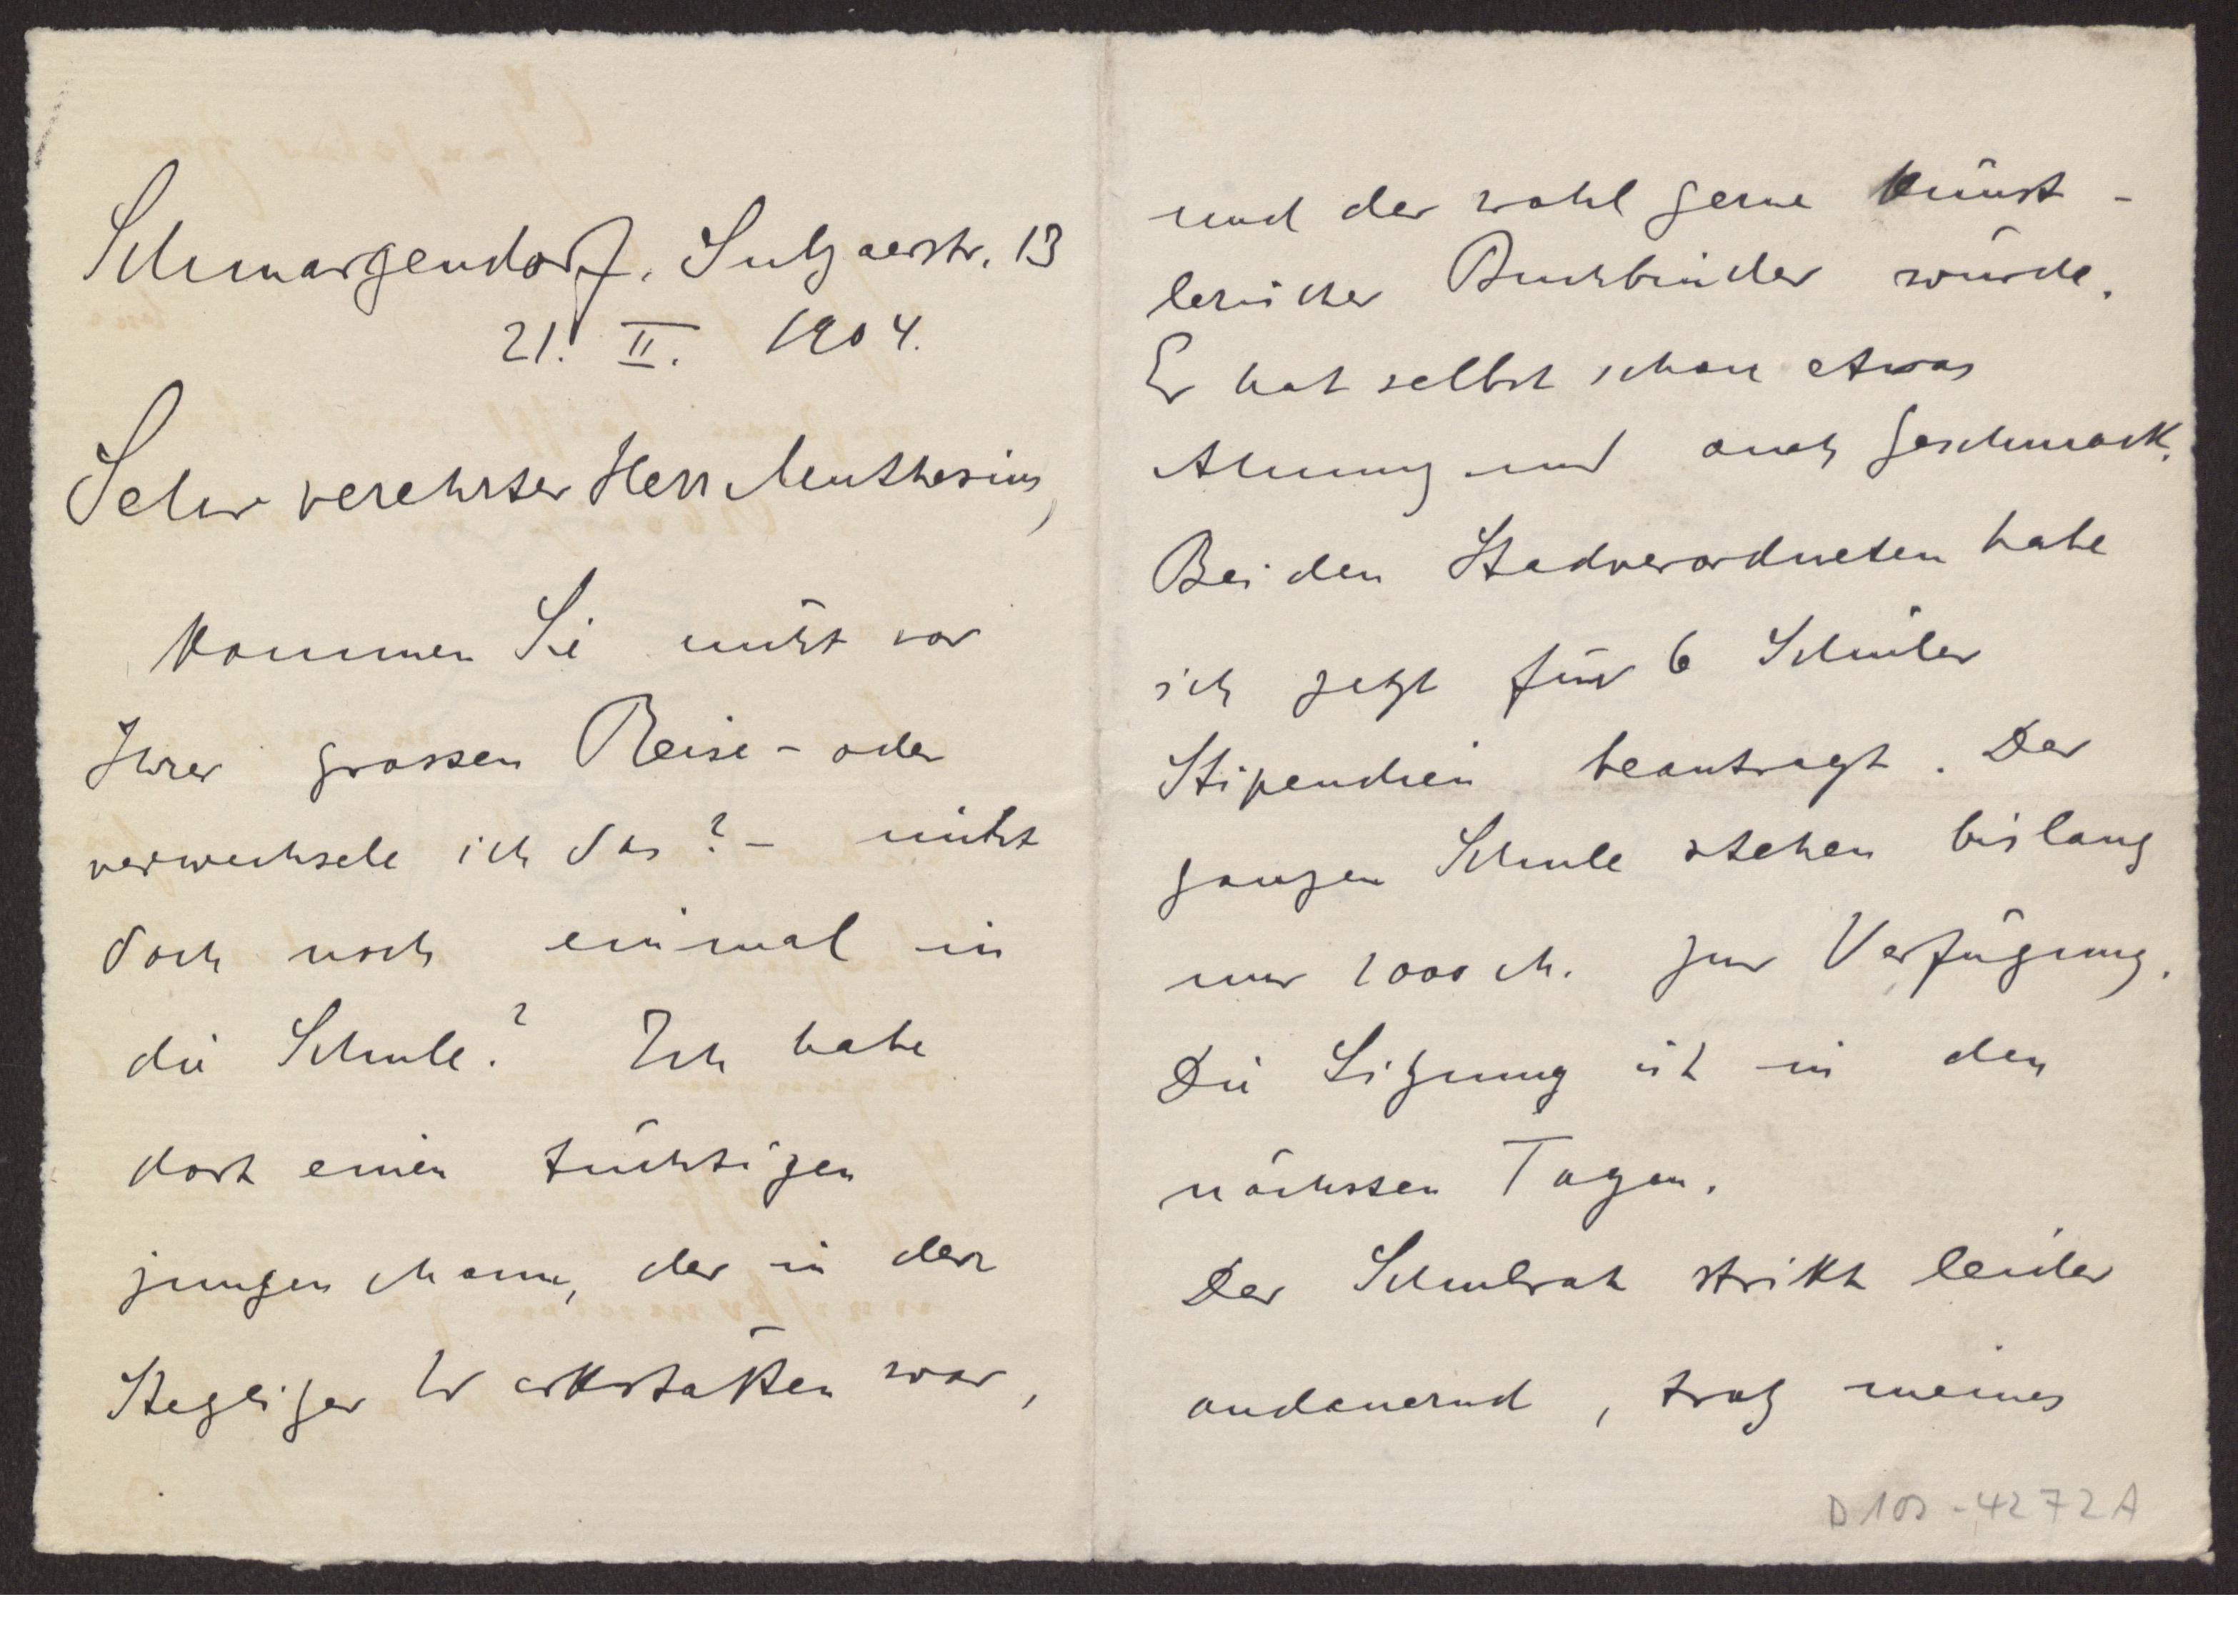 Schmargendorf, Sulzaerstr. 13
21. II. 1904.
Sehr verehrter Herr Muthesius,
Kommen Sie nicht vor
Ihrer grossen Reise - oder
verwechsele ich das? - nicht
doch noch einmal in
die Schule? Ich habe
dort einen tüchtigen
jungen Mann, der in den
Steglitzer Werkstätten war,
und der wohl gerne künst-
lerischer Buchbinder würde.
Er hat selbst schon etwas
Ahnung und auch Geschmack.
Bei den Stadverordneten habe
ich jetzt für 6 Schüler
Stipendien beantragt. Der
ganzen Schule stehen bislang
nur 1000 M. zur Verfügung.
Die Sitzung ist in den
nächsten Tagen.
Der Schulrat strikt leider
andauernd, trotz meines
D 102-4272A